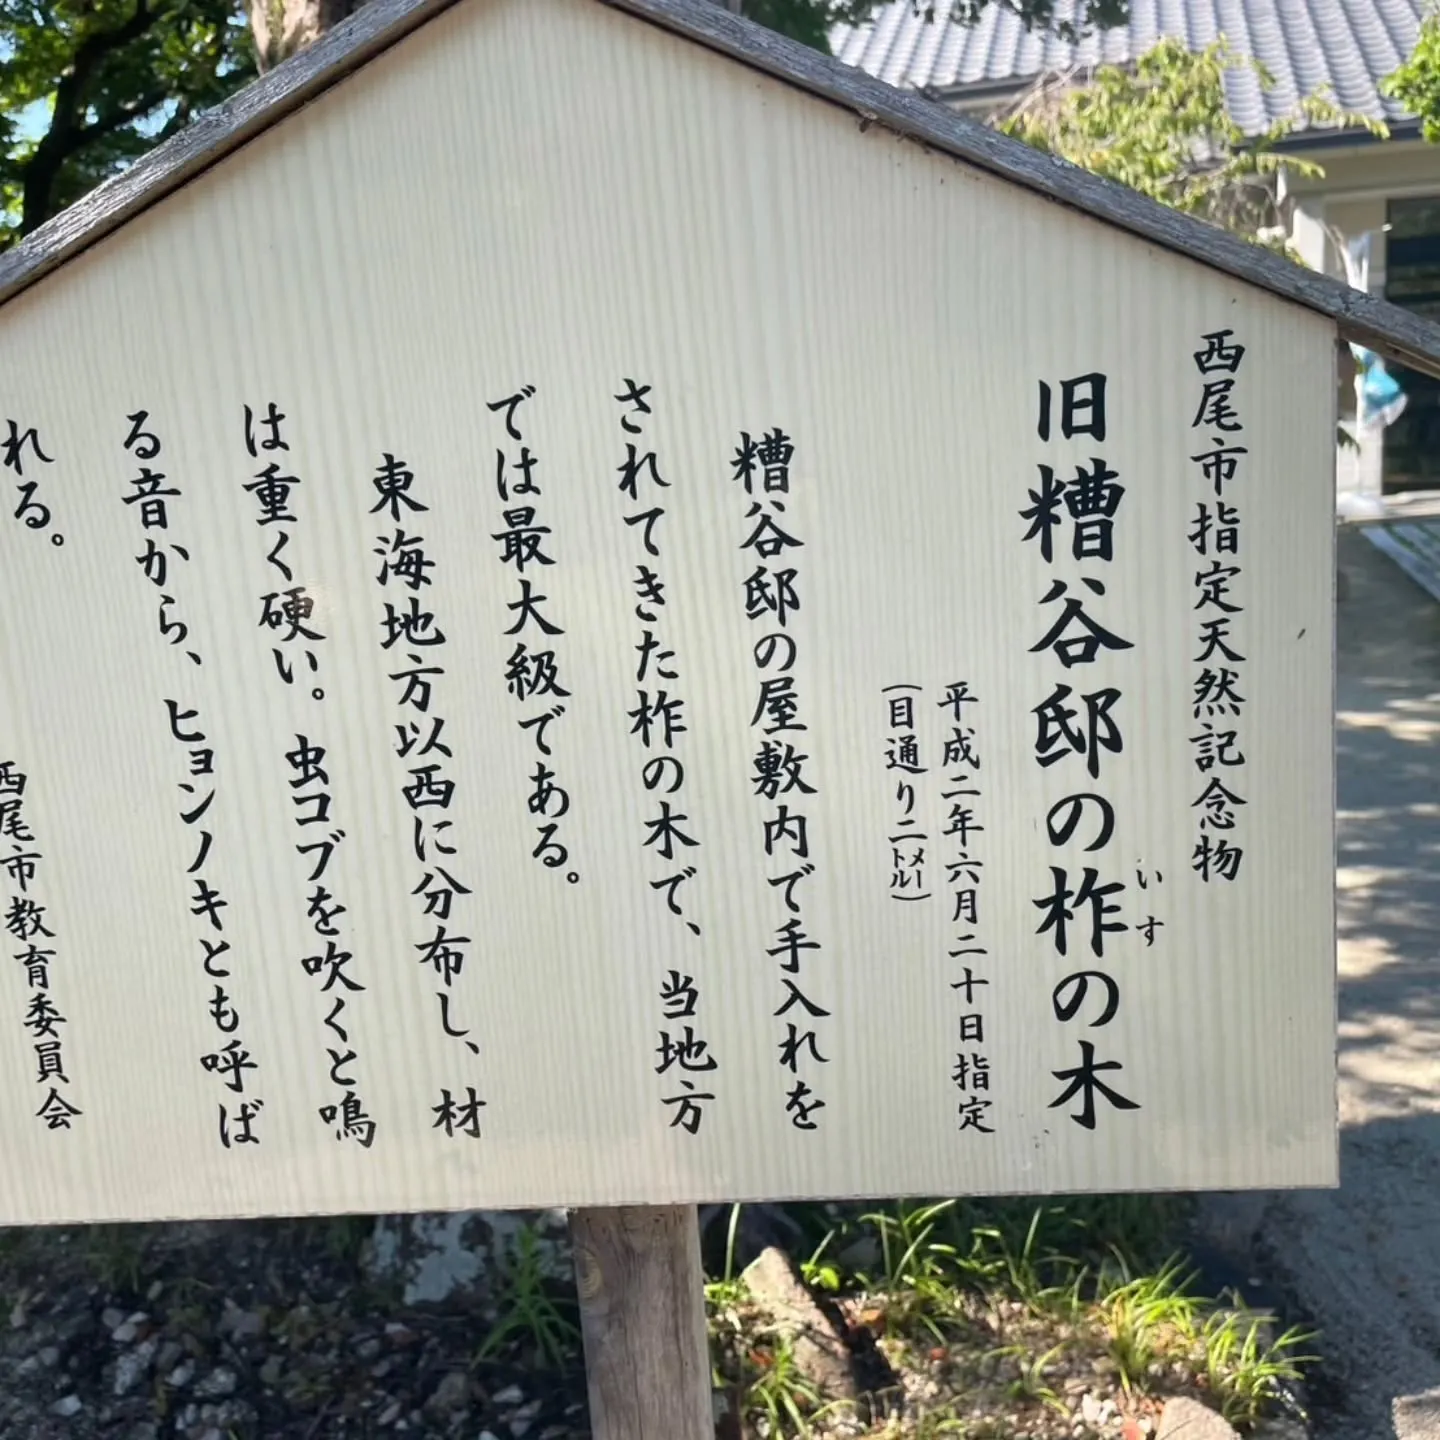 西尾市指定天然記念物
旧糟谷邸の柞の木
いす
平成二年六月二十日指定
（目通り二メートル）
糟谷邸の屋敷内で手入れを
されてきた柞の木で、当地方
では最大級である。
東海地方以西に分布し、材
は重く硬い。虫コブを吹くと鳴
る音から、ヒョンノキとも呼ば
れる。
西尾市教育委員会